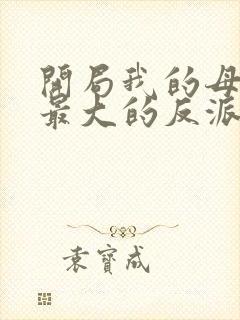 開局我的母
最大的反派
袁寶成